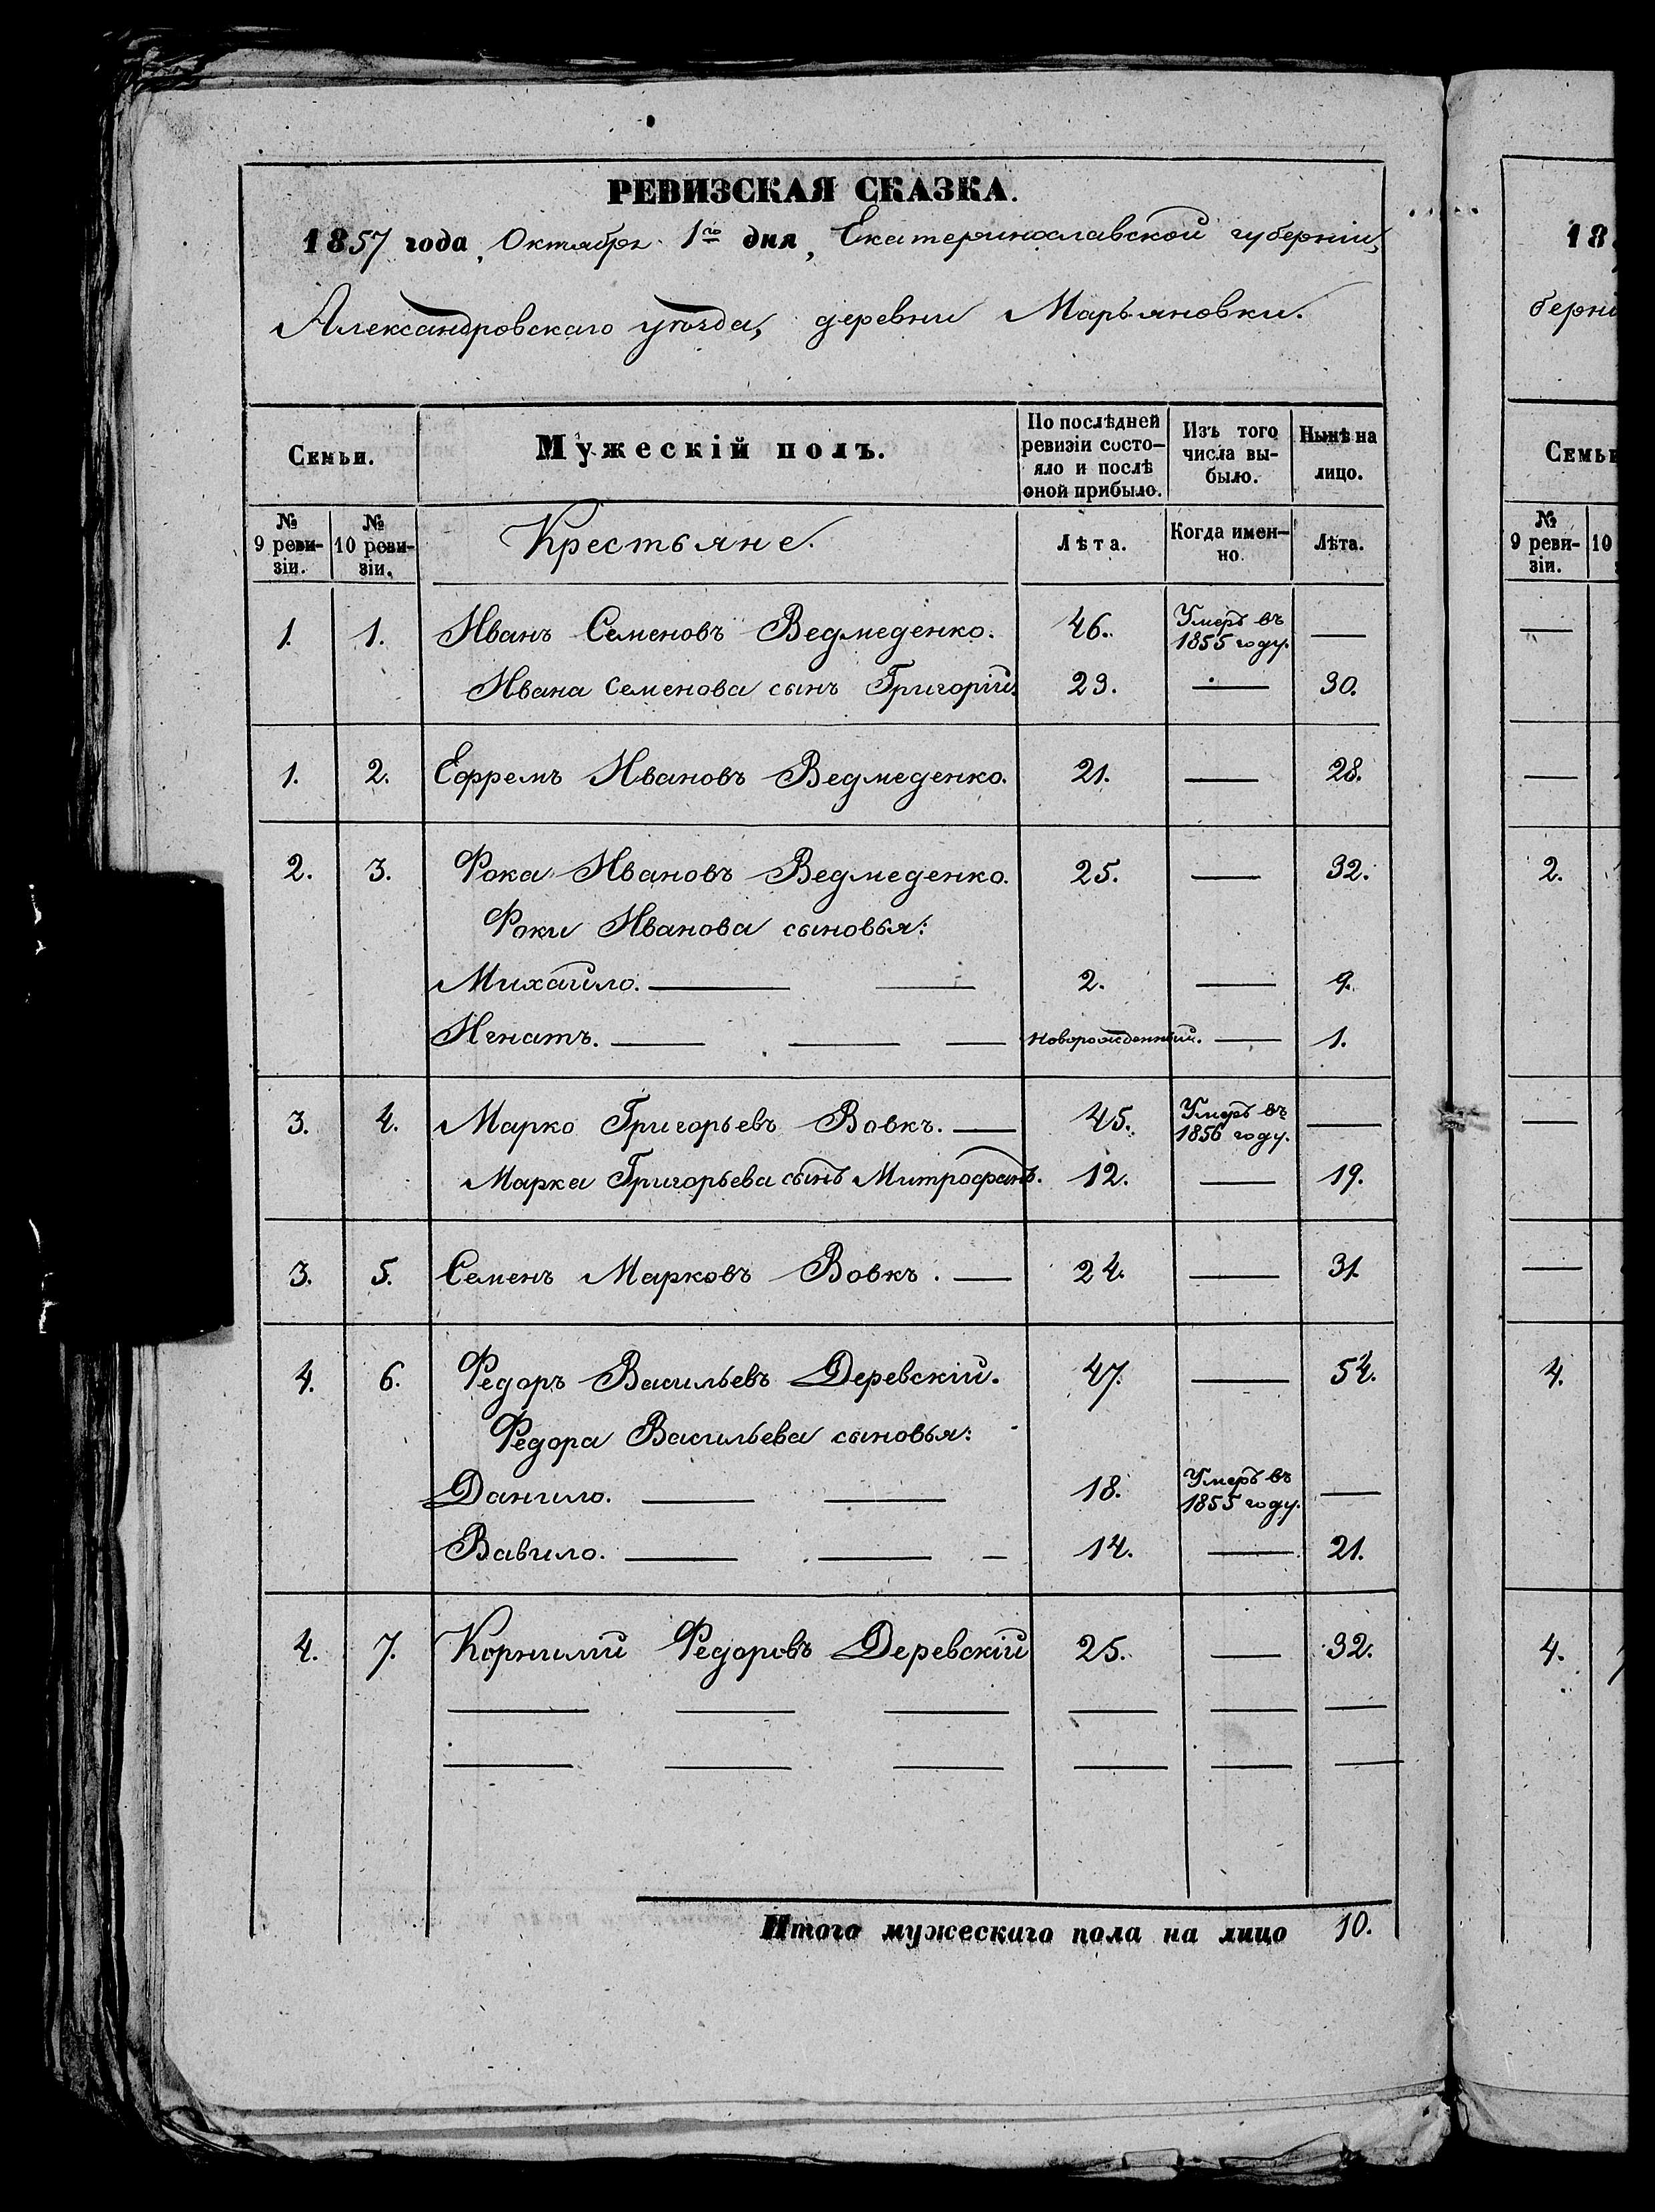 РЕВИЗСКАЯ СКАЗКА.
1857 года, Октября 1го дня, Екатеринославской губерніи,
Александровскаго уѣзда, деревни Марьяновки.
Семьи. Мужескій полъ. По послѣдней ревизіи состо- яло и послѣ оной прибыло. Изъ того числа вы- было. Нынѣ на лицо.
№ 9 реви- зіи. № 10 реви- зіи. Крестьяне. Лѣта. Когда имен- но. Лѣта.
1. 1. Иванъ Семеновъ Ведмеденко. 46. Умеръ въ 1855 году. —
Ивана Семенова сынъ Григорій. 23. — 30.
1. 2. Ефремъ Ивановъ Ведмеденко. 21. — 28.
2. 3. Фока Ивановъ Ведмеденко. 25. — 32.
Фоки Иванова сыновья:
Михайло. — — 2. — 9.
Игнатъ. — — — новорожденный. — 1.
3. 4. Марко Григорьевъ Вовкъ. — 45. Умеръ въ 1856 году. —
Марка Григорьева сынъ Митрофанъ. 12. — 19.
3. 5. Семенъ Марковъ Вовкъ. — 24. — 31.
4. 6. Федоръ Васильевъ Деревскій. 47. — 54.
Федора Васильева сыновья:
Данило. — — 18. Умеръ въ 1855 году. —
Вавило. — — — 14. — 21.
4. 7. Корнилій Федоровъ Деревскій 25. — 32.
— — — — — —
— — — — — —
Итого мужескаго пола на лицо 10.
18
берні
Семьи
№ 9 реви- зіи. 10
—
—
2.
—
—
4.
4.